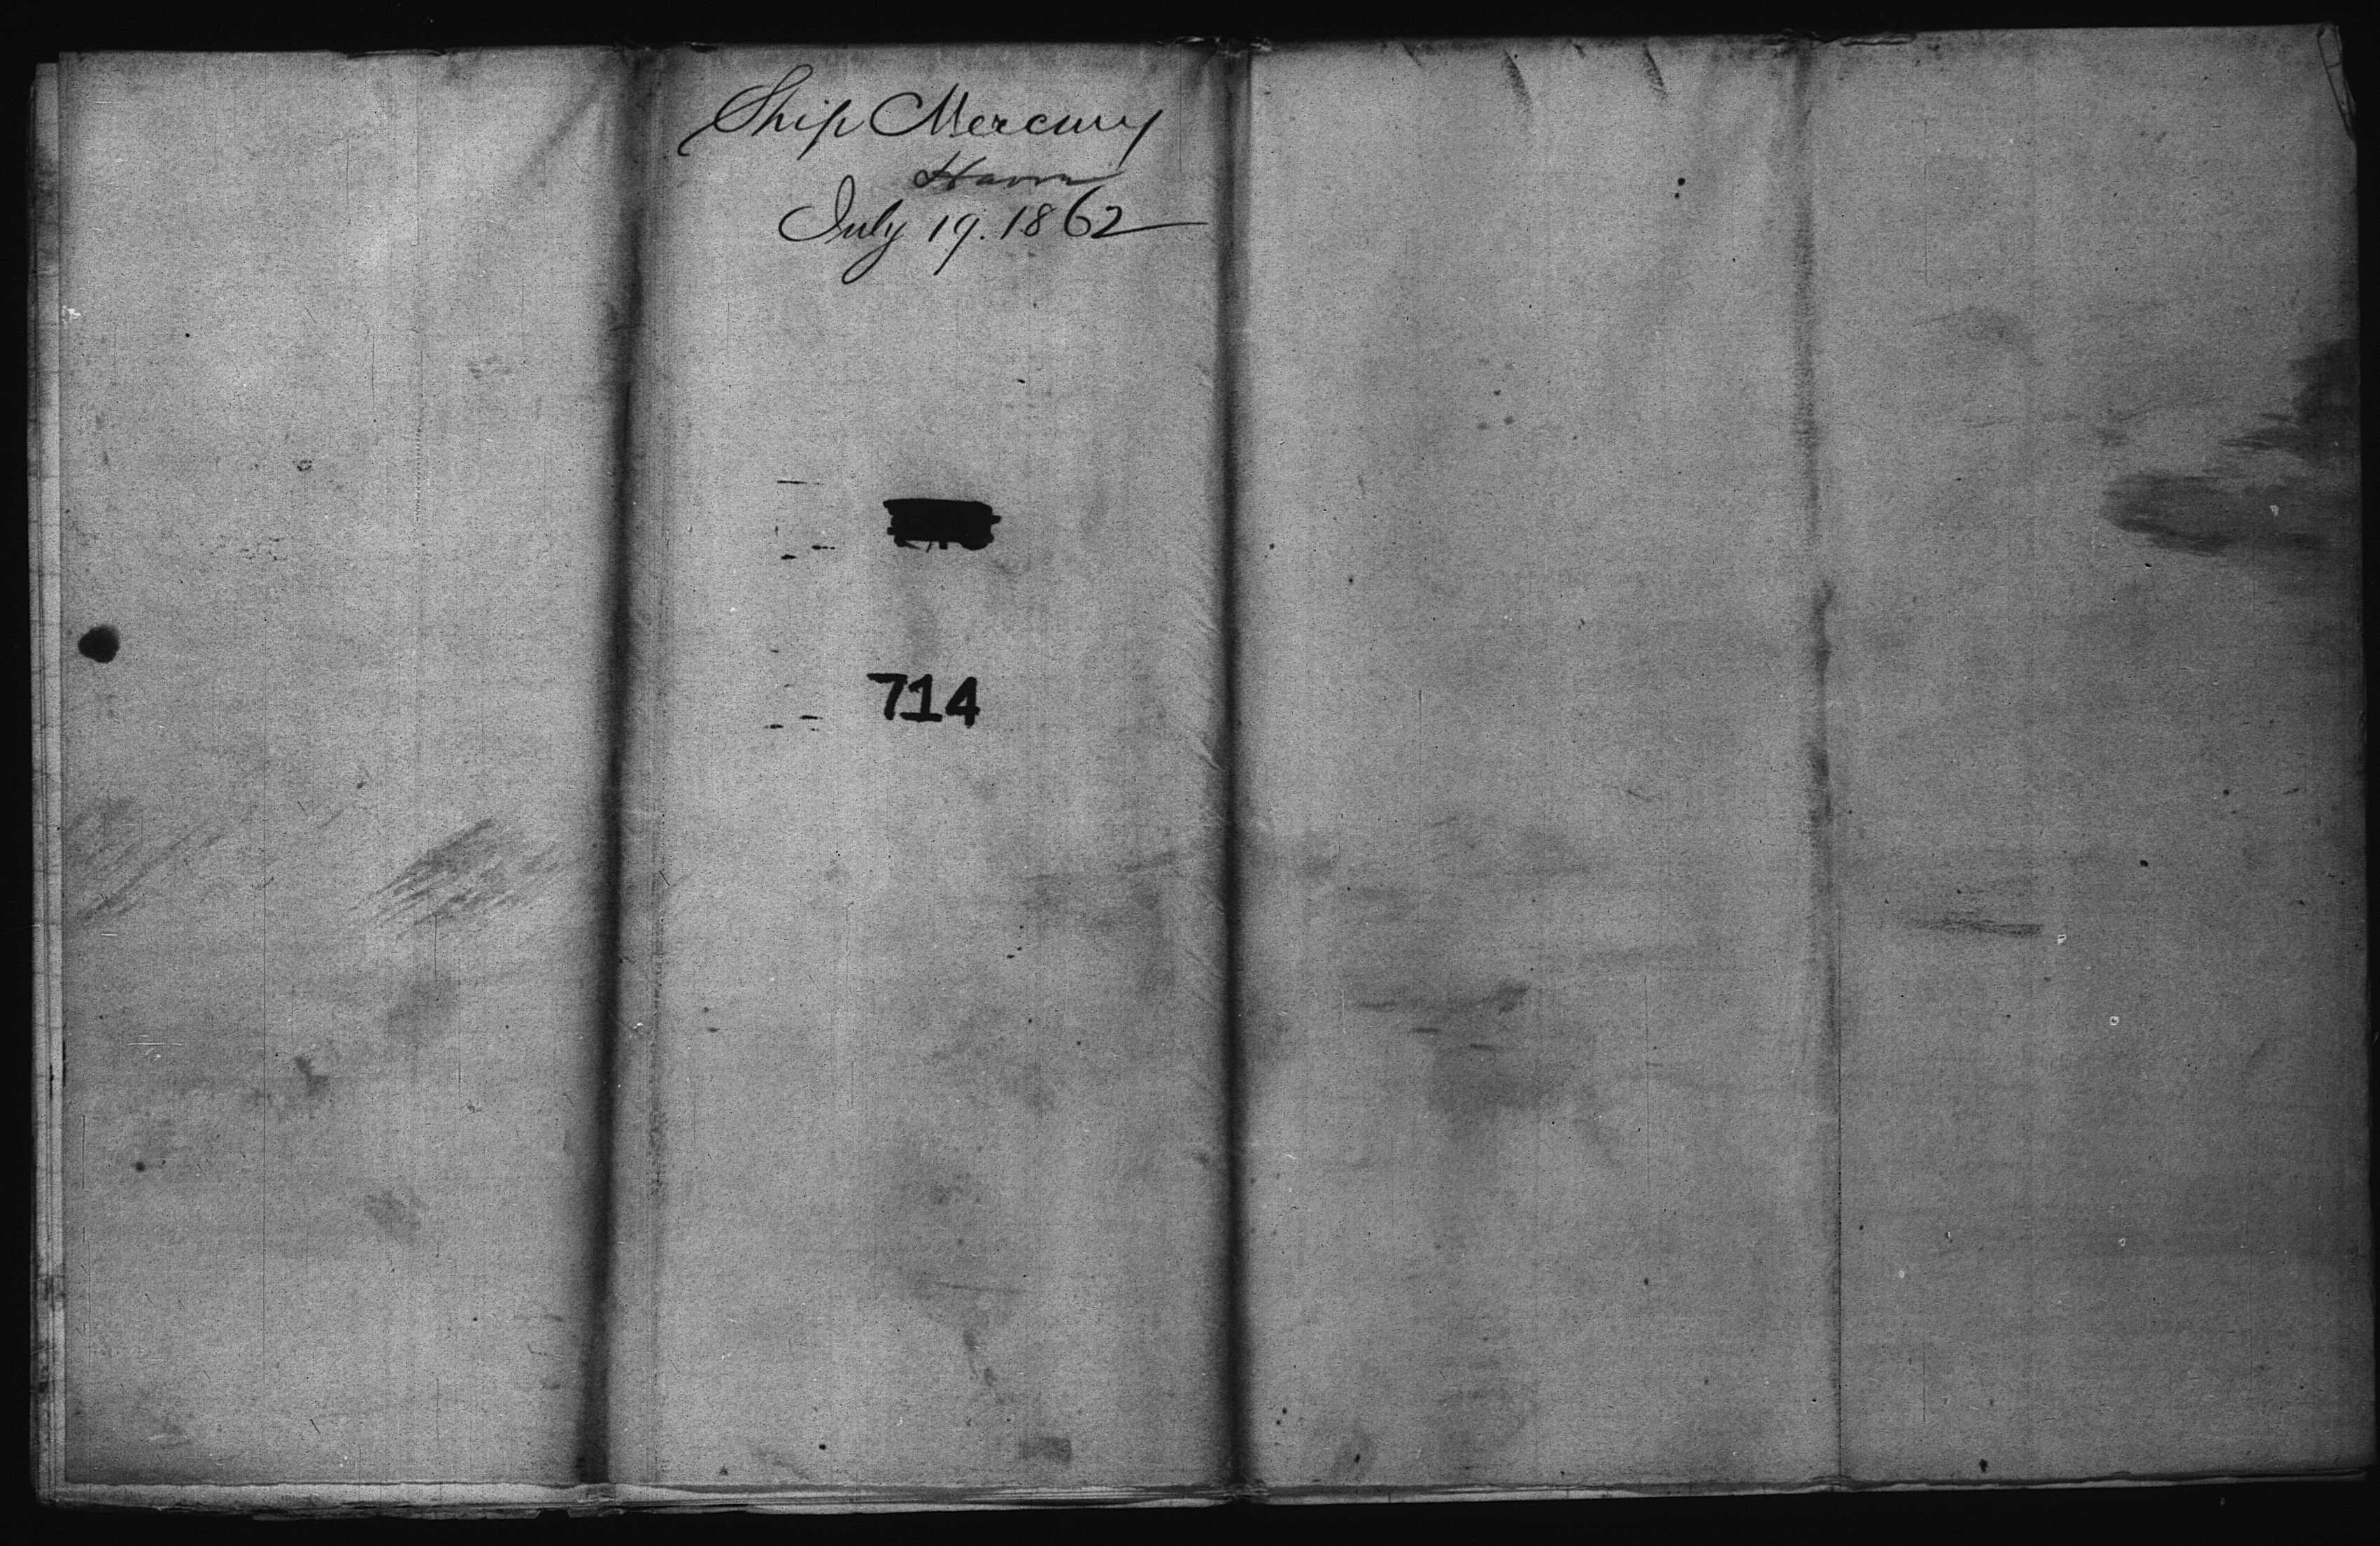 Ship Mercury
Havre
July 19. 1862
714